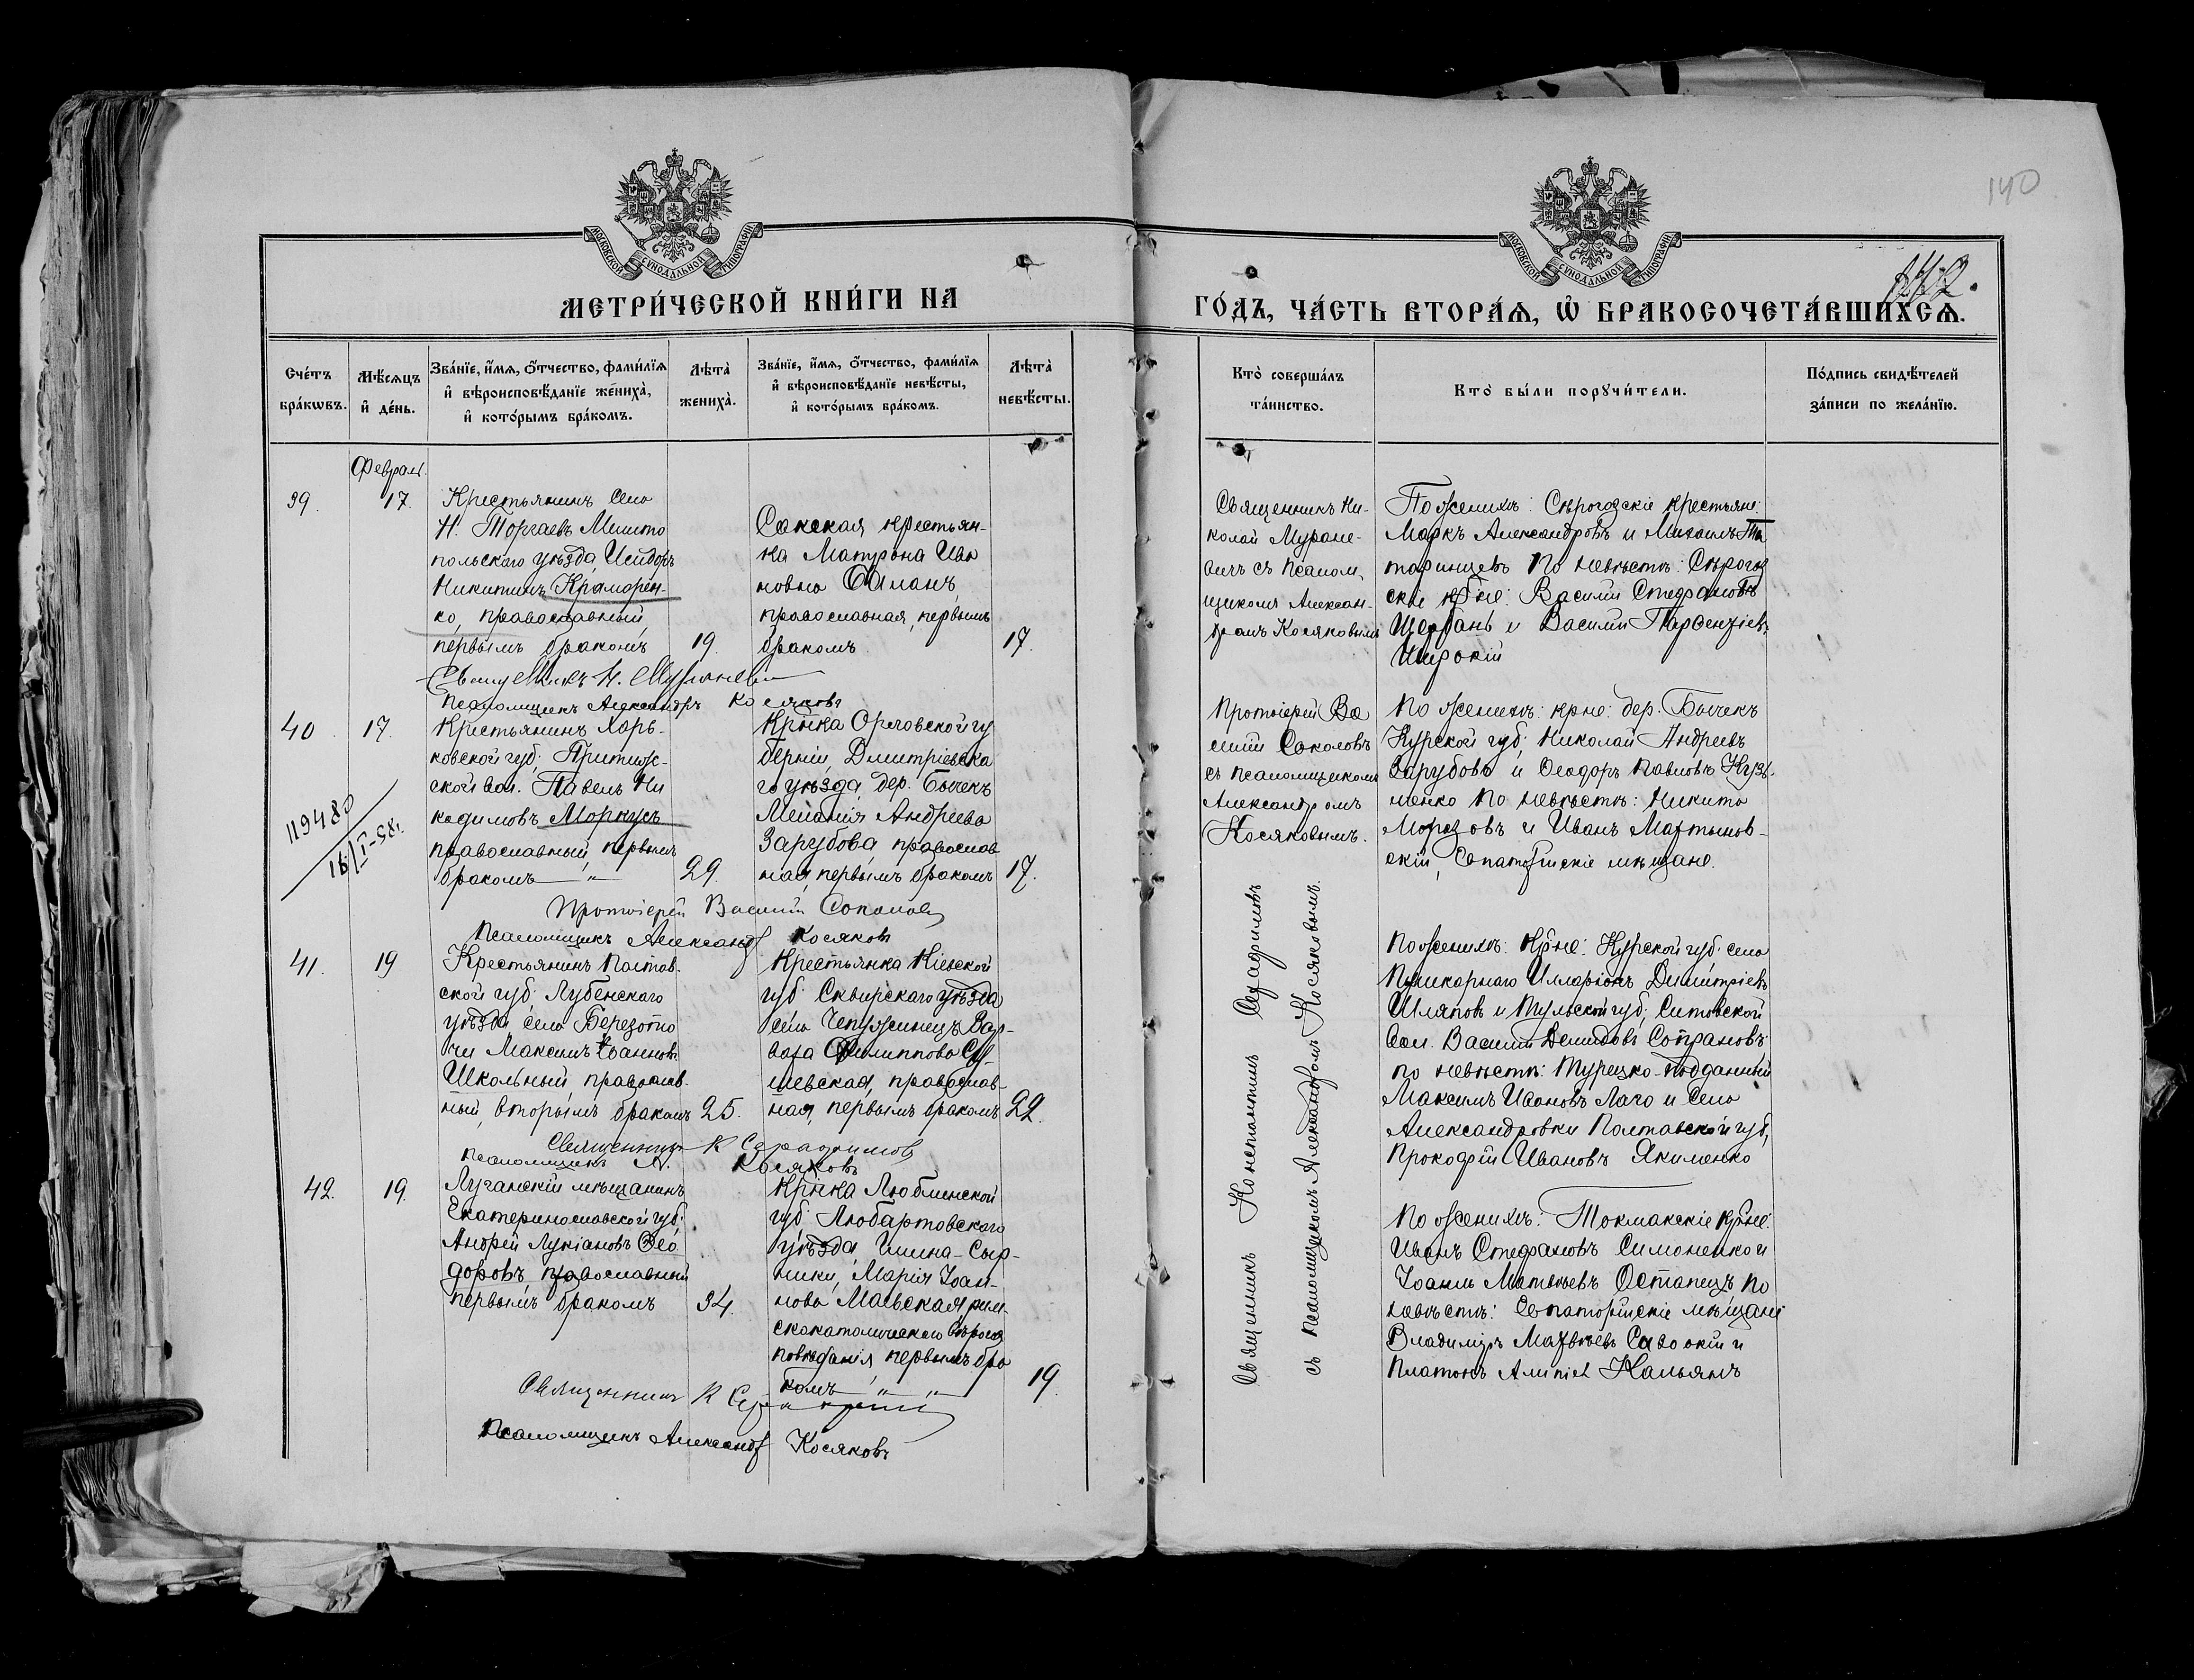 140
142.
МОСКОВСКОЙ СѴНОДАЛЬНОЙ ТИПОГРАФІИ
МЕТРИ́ЧЕСКОЙ КНИ́ГИ НА
МОСКОВСКОЙ СѴНОДАЛЬНОЙ ТИПОГРАФІИ
ГО́ДЪ, ЧА́СТЬ ВТОРА́Ѧ, Ѡ҆ БРАКОСОЧЕТА́ВШИХСѦ.
Сче́тъ
бра́кѡвъ.
Мѣ́сяцъ
и҆ де́нь.
Зва́нїе, и҆́мѧ, ѻ҆́тчество, фами́лїѧ
и҆ вѣроисповѣ́данїе жениха̀,
и҆ кото́рымъ бра́комъ.
Лѣта̀
жениха̀.
Зва́нїе, и҆́мѧ, ѻ҆́тчество, фами́лїѧ
и҆ вѣроисповѣ́данїе невѣ́сты,
и҆ кото́рымъ бра́комъ.
Лѣта̀
невѣ́сты.
Кто̀ соверша́лъ
та́инство.
Кто̀ бы́ли порꙋчи́тели.
По́дпись свидѣ́телей
за́писи по жела́нїю.
Феврал.
39.
17.
Крестьянинъ села
Н. Торгаевъ Мелито
польскаго уѣзда Исидоръ
Никитинъ Краморен-
ко, православный,
первымъ бракомъ
19.
Сакская крестьян-
ка Матрона Ива
новна
православная, первымъ
бракомъ
17.
Священникъ Ни-
колай Муране-
вичъ съ псалом-
щикомъ Алексан-
дромъ Косяковымъ
По женихѣ: Сѣрогозскіе крестьяне:
Маркъ Александровъ и Михаилъ Та
таринцевъ По невѣстѣ: Сѣрогоз
скіе крне: Василій Стефановъ
Щербань и Василій Парфентіевъ
Широкій
Священникъ Н. Мураневичъ
Псаломщикъ Александръ Косяковъ
40.
17.
119480
16/I-58г.
Крестьянинъ Харь-
ковской губ.
ской вол. Павелъ Ни
кодимовъ Моркусъ
православный, первымъ
бракомъ — „
29.
Крнка Орловской гу
берніи, Дмитріевска
го уѣзда, дер. Бычекъ
Меланія Андреева
Зарубова, православ
ная, первымъ бракомъ
17.
Протоіерей Ва
силій Соколовъ
съ псаломщикомъ
Александромъ
Косяковымъ.
По женихѣ: крне: дер. Бычекъ
Курской губ. Николай Андреевъ
Зарубовъ и Ѳеодоръ Павловъ Кузь-
менко По невѣстѣ: Никита
Морозовъ и Иванъ Мартынов-
скій, Евпаторійскіе мѣщане.
Протоіерей Василій Соколовъ
Псаломщикъ Александр Косяковъ
41.
19
Крестьянинъ Полтав.
ской губ. Лубенскаго
уѣзда, села Березото
чи Максимъ Іоанновъ
Школьный, православ.
ный, вторымъ бракомъ
25.
Крестьянка Кіевской
губ. Сквирскаго уѣзда
села Чепужинецъ Вар-
вара Филиппова Су-
шевская, православ-
ная, первымъ бракомъ
22.
Священникъ Константинъ Серафимовъ
съ псаломщикомъ Александромъ Косяковымъ.
По женихѣ: крне: Курской губ. села
Пушкарнаго Илларіонъ Димитріевъ
Шляповъ и Тульской губ. Ситовской
вол. Василій Демидовъ Софановъ
по невѣстѣ: Турецко-подданный
Максимъ Ивановъ Лаго и села
Александровки Полтавской губ.
Прокофій Ивановъ Якименко
Священникъ К Серафимов
псаломщикъ А. Косяковъ
42.
19.
Луганскій мѣщанинъ
Екатеринославской губ.
Андрей Лукіановъ Ѳео
доровъ, православный
первымъ бракомъ
34.
Крнка Люблинской
губ. Любартовскаго
уѣзда, Гмина-Сыр-
ники, Марія Іоан-
нова Мальская рим-
скокатолическаго вѣроис
повѣданія, первымъ бра
комъ — „ — „
19.
По женихѣ: Токмакскіе крне:
Иванъ Стефановъ Симоненко и
Іоаннъ Матвѣевъ Остапецъ По
невѣстѣ: Евпаторійскіе мѣщане
Владиміръ Матвѣевъ Савоскій и
Платонъ Алипіев Кальянъ
Священникъ К Серафимов
Псаломщикъ Александр Косяковъ